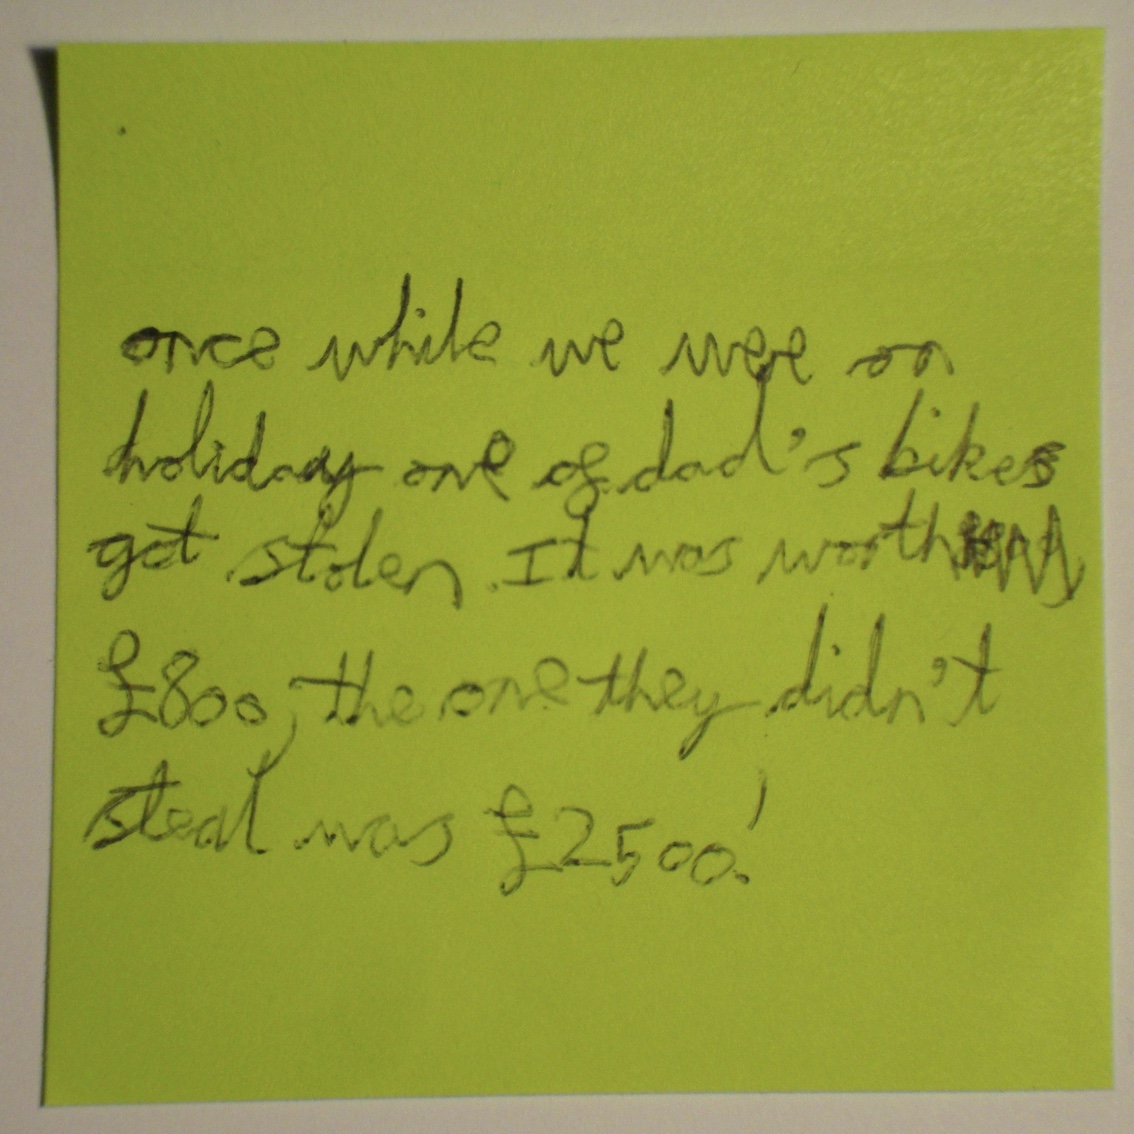 once while we were on
holiday one of dad's bikes
got stolen. It was worth
£800, the one they didn't
steal was £2500!